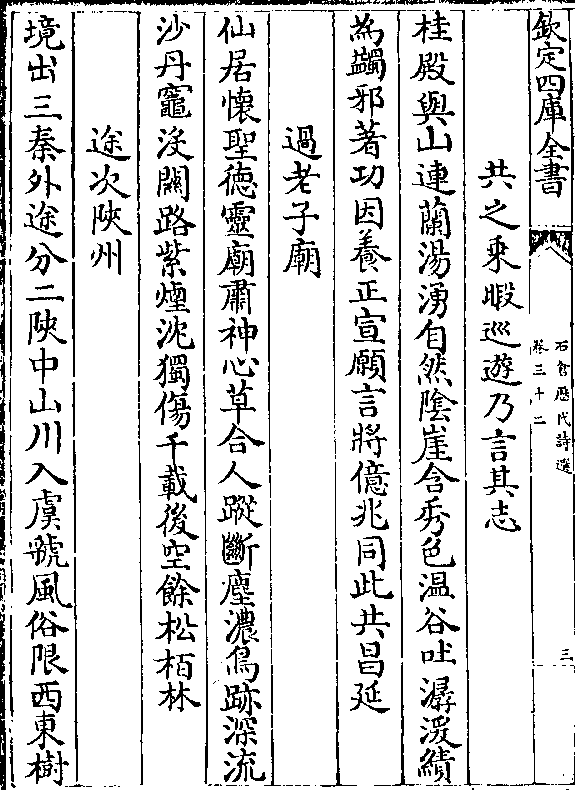 欽定四庫全書
石倉歷代詩選
卷三十二
三
共之乘暇巡遊乃言其志
桂殿與山連蘭湯湧自然陰崖含秀色温谷吐潺湲績
為蠲邪著功因養正宣願言將億兆同此共昌延
過老子廟
仙居懷聖德靈廟肅神心草合人蹤斷塵濃鳥跡深流
沙丹竈没關路紫煙沈獨傷千載後空餘松栢林
途次陜州
境出三秦外途分二陜中山川入虞虢風俗限西東樹